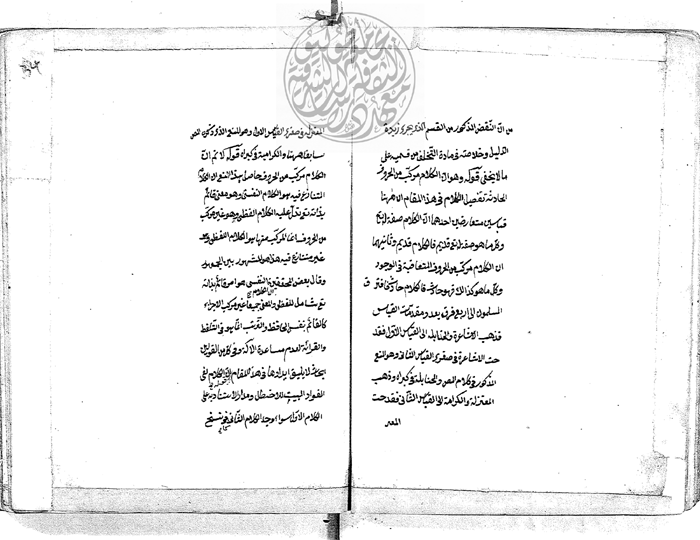 من ان النقض المذكور من القسم الذي يجري زبدة
الدليل وخلاصته في مادة التخلف من قسميه على
ما لا يخفى قوله وهو ان الكلام مركب من الحروف
الحادثة تفصيل الكلام في هذا المقام ان ههنا
قياسين متعارضين احدهما ان الكلام صفة له تع
وكل ما هو صفة له تع قديم فالكلام قديم وثانيهما
ان الكلام مركب من الحروف المتعاقبة في الوجود
وكل ما هو كذا فهو حادث فالكلام حادث فافترق
المسلمون الى اربع فرق بعدد مقدمات القياس
فذهب الاشاعرة والحنابلة الى القياس الاول فقد
حت الاشاعرة في صغرى القياس الثاني وهو المنع
المذكور في كلام المص والحنابلة في كبراه وذهب
المعتزلة والكرامية الى القياس الثاني فقدحت
المعتز
المعتزلة في صغرى القياس الاول وهو المنع الذي ذكره المص
سابقا ههنا والكرامية في كبراه قوله لا نم ان
الكلام مركب من الحروف حاصل هذا المنع ان الكلام
المتنازع فيه هو الكلام النفسي وهو معنى قائم
بذاته تع يدل عليه الكلام اللفظي وهو غير مركب
من الحروف انما المركب منها هو الكلام اللفظي وهو
غير متنازع فيه هذا هو المشهور بين الجمهور
وقال بعض المحققين الكلام النفسي هو امر قائم بذاته
تع شامل للفظ والمعنى جميعا غير مركب الاجزاء
كالقائم بنفس الحافظ والترتيب انما هو في التلفظ
والقراءة لعدم مساعدة الآلة وفي كل من القولين
بحاث لا يليق ايرادها في هذا المقام ان الكلام لفي
الفواد البيت للاخطل ومدار الاستناد به على
الكلام الاول سواء وجد الكلام الثاني في